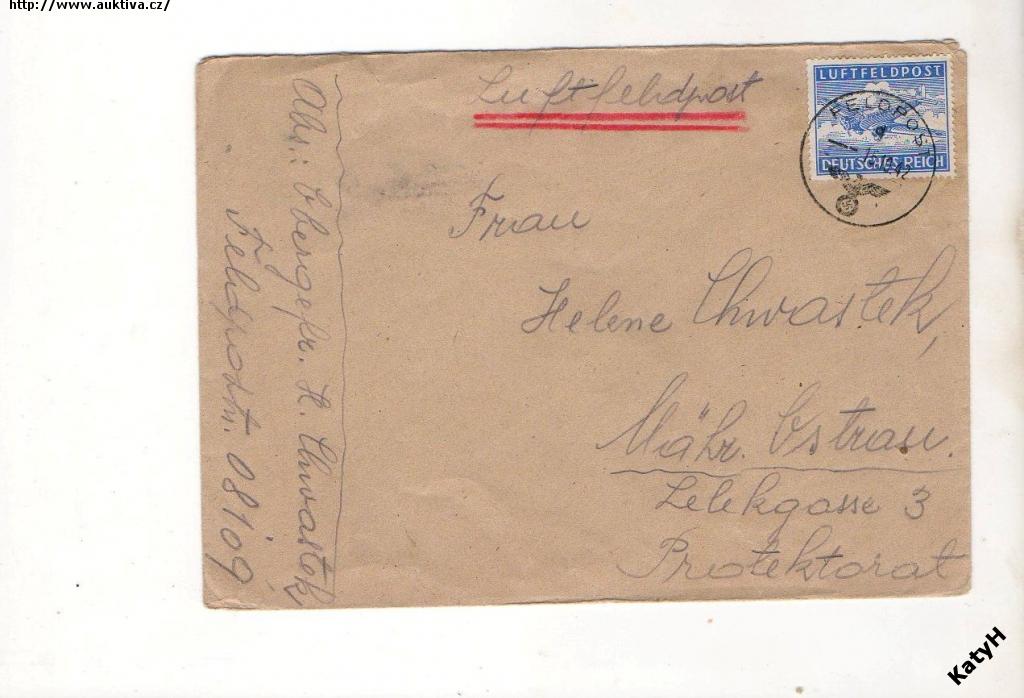 http://www.auktiva.cz/
Luftfeldpost
LUFTFELDPOST
DEUTSCHES REICH
FELDPOST
Frau
Helene Chwastek,
Mähr. Ostrau.
Lelekgasse 3
Protektorat
Abs.: Obergefr. H. Chwastek
Feldpostn. 08109
KatyH